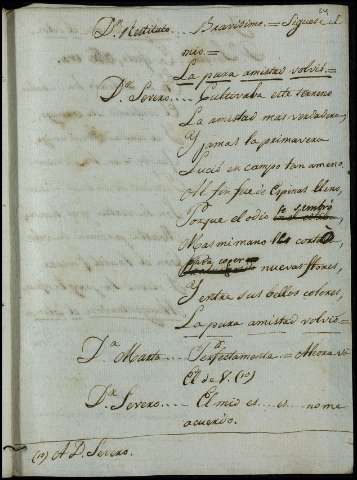 Dⁿ. Restituto.... Bravisimo. = Siguese el
mio =
La pura amistad volvió. =
Dⁿ. Severo.... Cultivaba este terreno
La amistad mas verdadera,
Y jamas la primavera
Lució en campo tan ameno.
Al fin fue de espinas lleno,
Pʳ. que el odio lo sembró
Mas mi mano las cortó
para coger nuevas flores,
Y entre sus bellos colores,
La pura amistad volvió =
D.ª Marta.... Perfectamente = Ahora vá
El de V. (10)
Dⁿ. Severo.... El mio es... es... no me
acuerdo.
(10) A D. Severo.